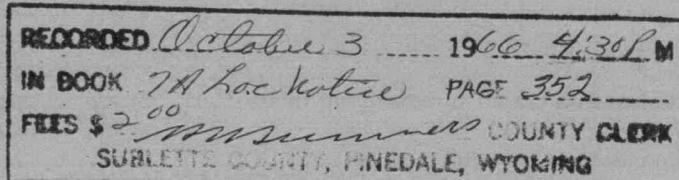 RECORDED October 3 1966 4:30 P M
IN BOOK 7A Loc Notice PAGE 352
FEES $ 2 00 COUNTY CLERK
SUBLETTE COUNTY, PINEDALE, WYOMING